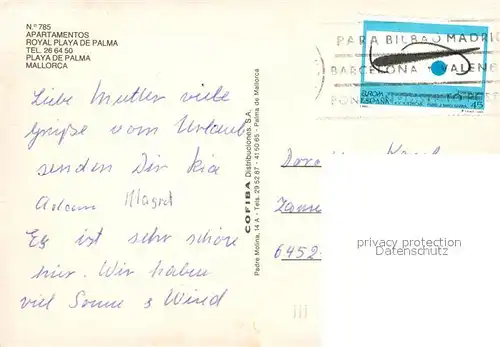 N.º 785
APARTAMENTOS
ROYAL PLAYA DE PALMA
TEL. 26 64 50
PLAYA DE PALMA
MALLORCA
Liebe Mutter viele
Grüße vom Urlaub
senden Dir
Adam Magret
Es ist sehr schön
hier. Wir haben
viel Sonne & Wind
COFIBA Distribuciones, S.A.
Padre Molina, 14 A - Tels. 29 52 87 - 41 50 65 - Palma de Mallorca
PARA BILBAO MADRID
BARCELONA Y VALENC
EUROPA
ESPAÑA
45
6452
privacy protection
Datenschutz